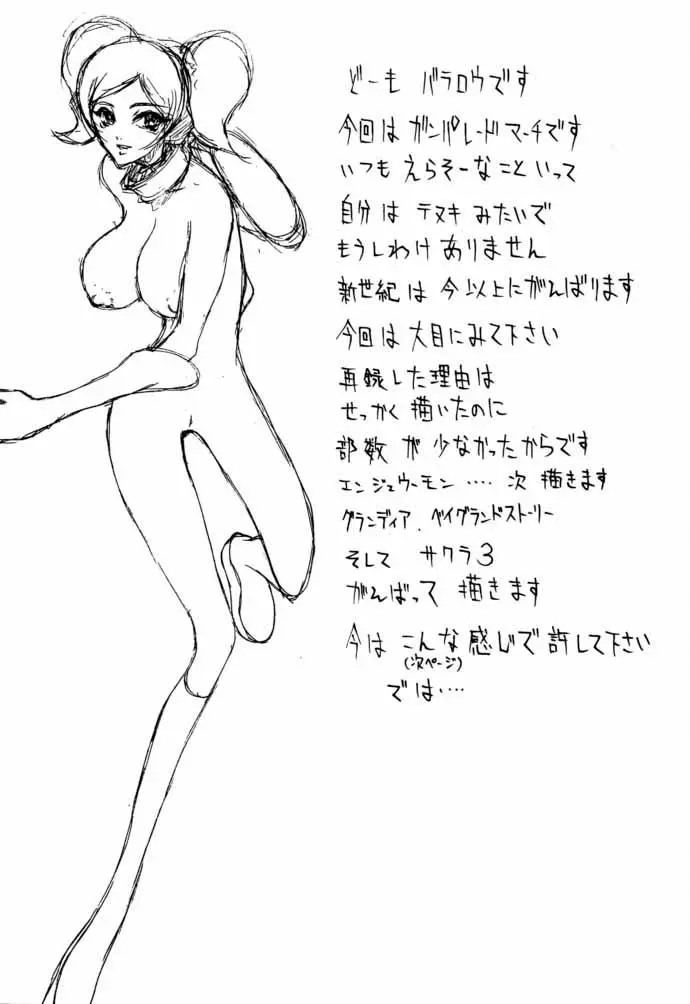 どーも バラロウです
今回は ガンパレードマーチです
いつも えらそーなこといって
自分は テヌキ みたいで
もうしわけ ありません
新世紀は 今以上にがんばります
今回は 大目にみて下さい
再録した理由は
せっかく 描いたのに
部数 が 少なかったからです
エンジェウーモン …. 次 描きます
グランディア. ベイグランドストーリー
そして サクラ3
がんばって 描きます
今は こんな 感じで 許して下さい
(次ページ)
では….